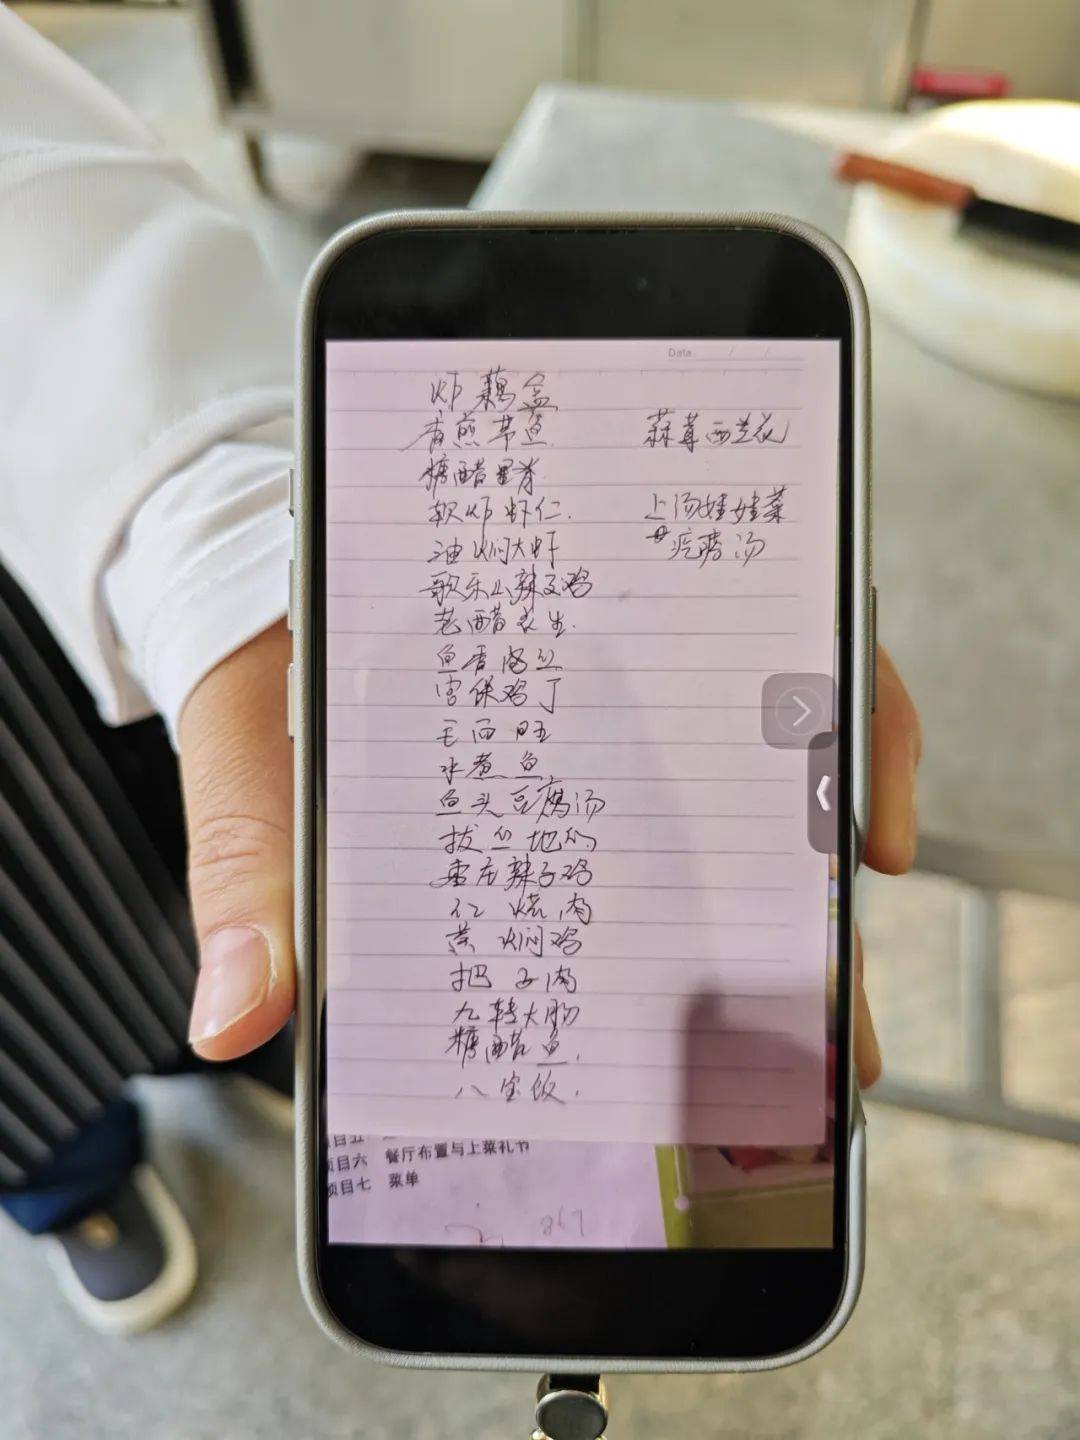 Date / /
炸藕盒
香煎带鱼
蒜茸西兰花
糖醋里脊
软炸虾仁.
上汤娃娃菜
油焖大虾
疙瘩汤
歌乐山辣子鸡
老醋花生.
鱼香肉丝
宫保鸡丁
毛血旺
水煮鱼
鱼头豆腐汤
拔丝地瓜
枣庄辣子鸡
红烧肉
黄焖鸡
把子肉
九转大肠
糖醋鱼.
八宝饭.
项目五
项目六 餐厅布置与上菜礼节
项目七 菜单